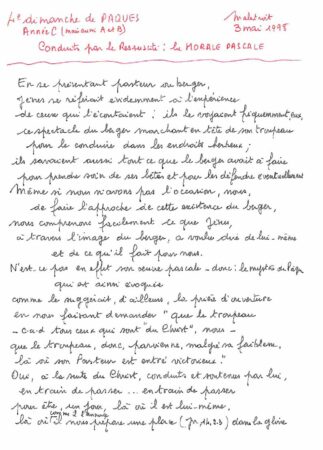 4e dimanche de PAQUES
Année C (mais aussi A et B)
Maletroit
3 mai 1998
Conduits par le Ressuscité : la MORALE PASCALE
En se présentant pasteur ou berger,
Jésus se référait évidemment à l'expérience
de ceux qui l'écoutaient : ils le voyaient fréquemment, eux,
ce spectacle du berger marchant en tête de son troupeau
pour le conduire dans les endroits herbeux ;
ils savaient aussi tout ce que le berger avait à faire
pour prendre soin de ses bêtes et pour les défendre éventuellement
Même si nous n'avons pas l'occasion, nous,
de faire l'approche de cette existence du berger,
nous comprenons facilement ce que Jésus,
à travers l'image du berger, a voulu dire de lui-même
et de ce qu'il fait pour nous.
N'est-ce pas en effet son œuvre pascale - donc : le mystère de Pâques
qui est ainsi évoquée
comme le suggérait, d'ailleurs, la prière d'ouverture
en nous faisant demander "que le troupeau
- c-à-d tous ceux qui sont "du Christ", nous -
que le troupeau, donc, parvienne, malgré sa faiblesse,
là où son Pasteur est entré victorieux."
Oui, à la suite du Christ, conduits et soutenus par lui,
en train de passer ... en train de passer
pour être, un jour, là où il est lui-même,
comme il l'annonce
là où il nous prépare une place (Jn 14, 2.3) dans la gloire